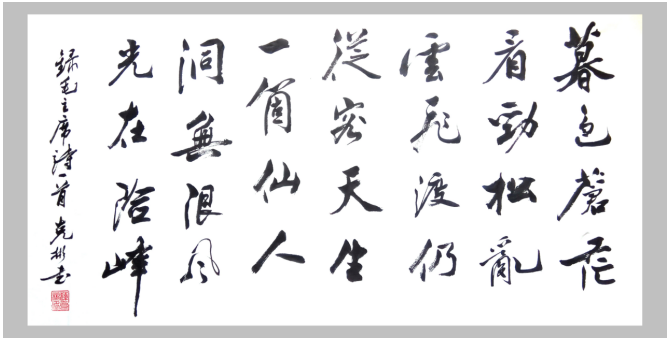 暮色蒼茫
看勁松亂
雲飛渡仍
從容天生
一箇仙人
洞無限風
光在險峰
録毛主席詩一首 克彬書